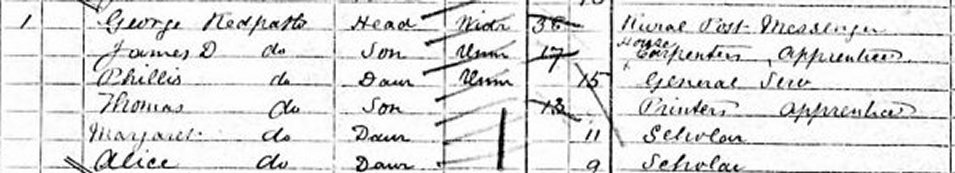 1 George Redpath Head Widr 38 Rural Post Messenger
James D do Son Unm 17 House Carpenters Apprentice
Phillis do Daur Unm 15 General Serv
Thomas do Son 13 Printers apprentice
Margaret do Daur 11 Scholar
Alice do Daur 9 Scholar